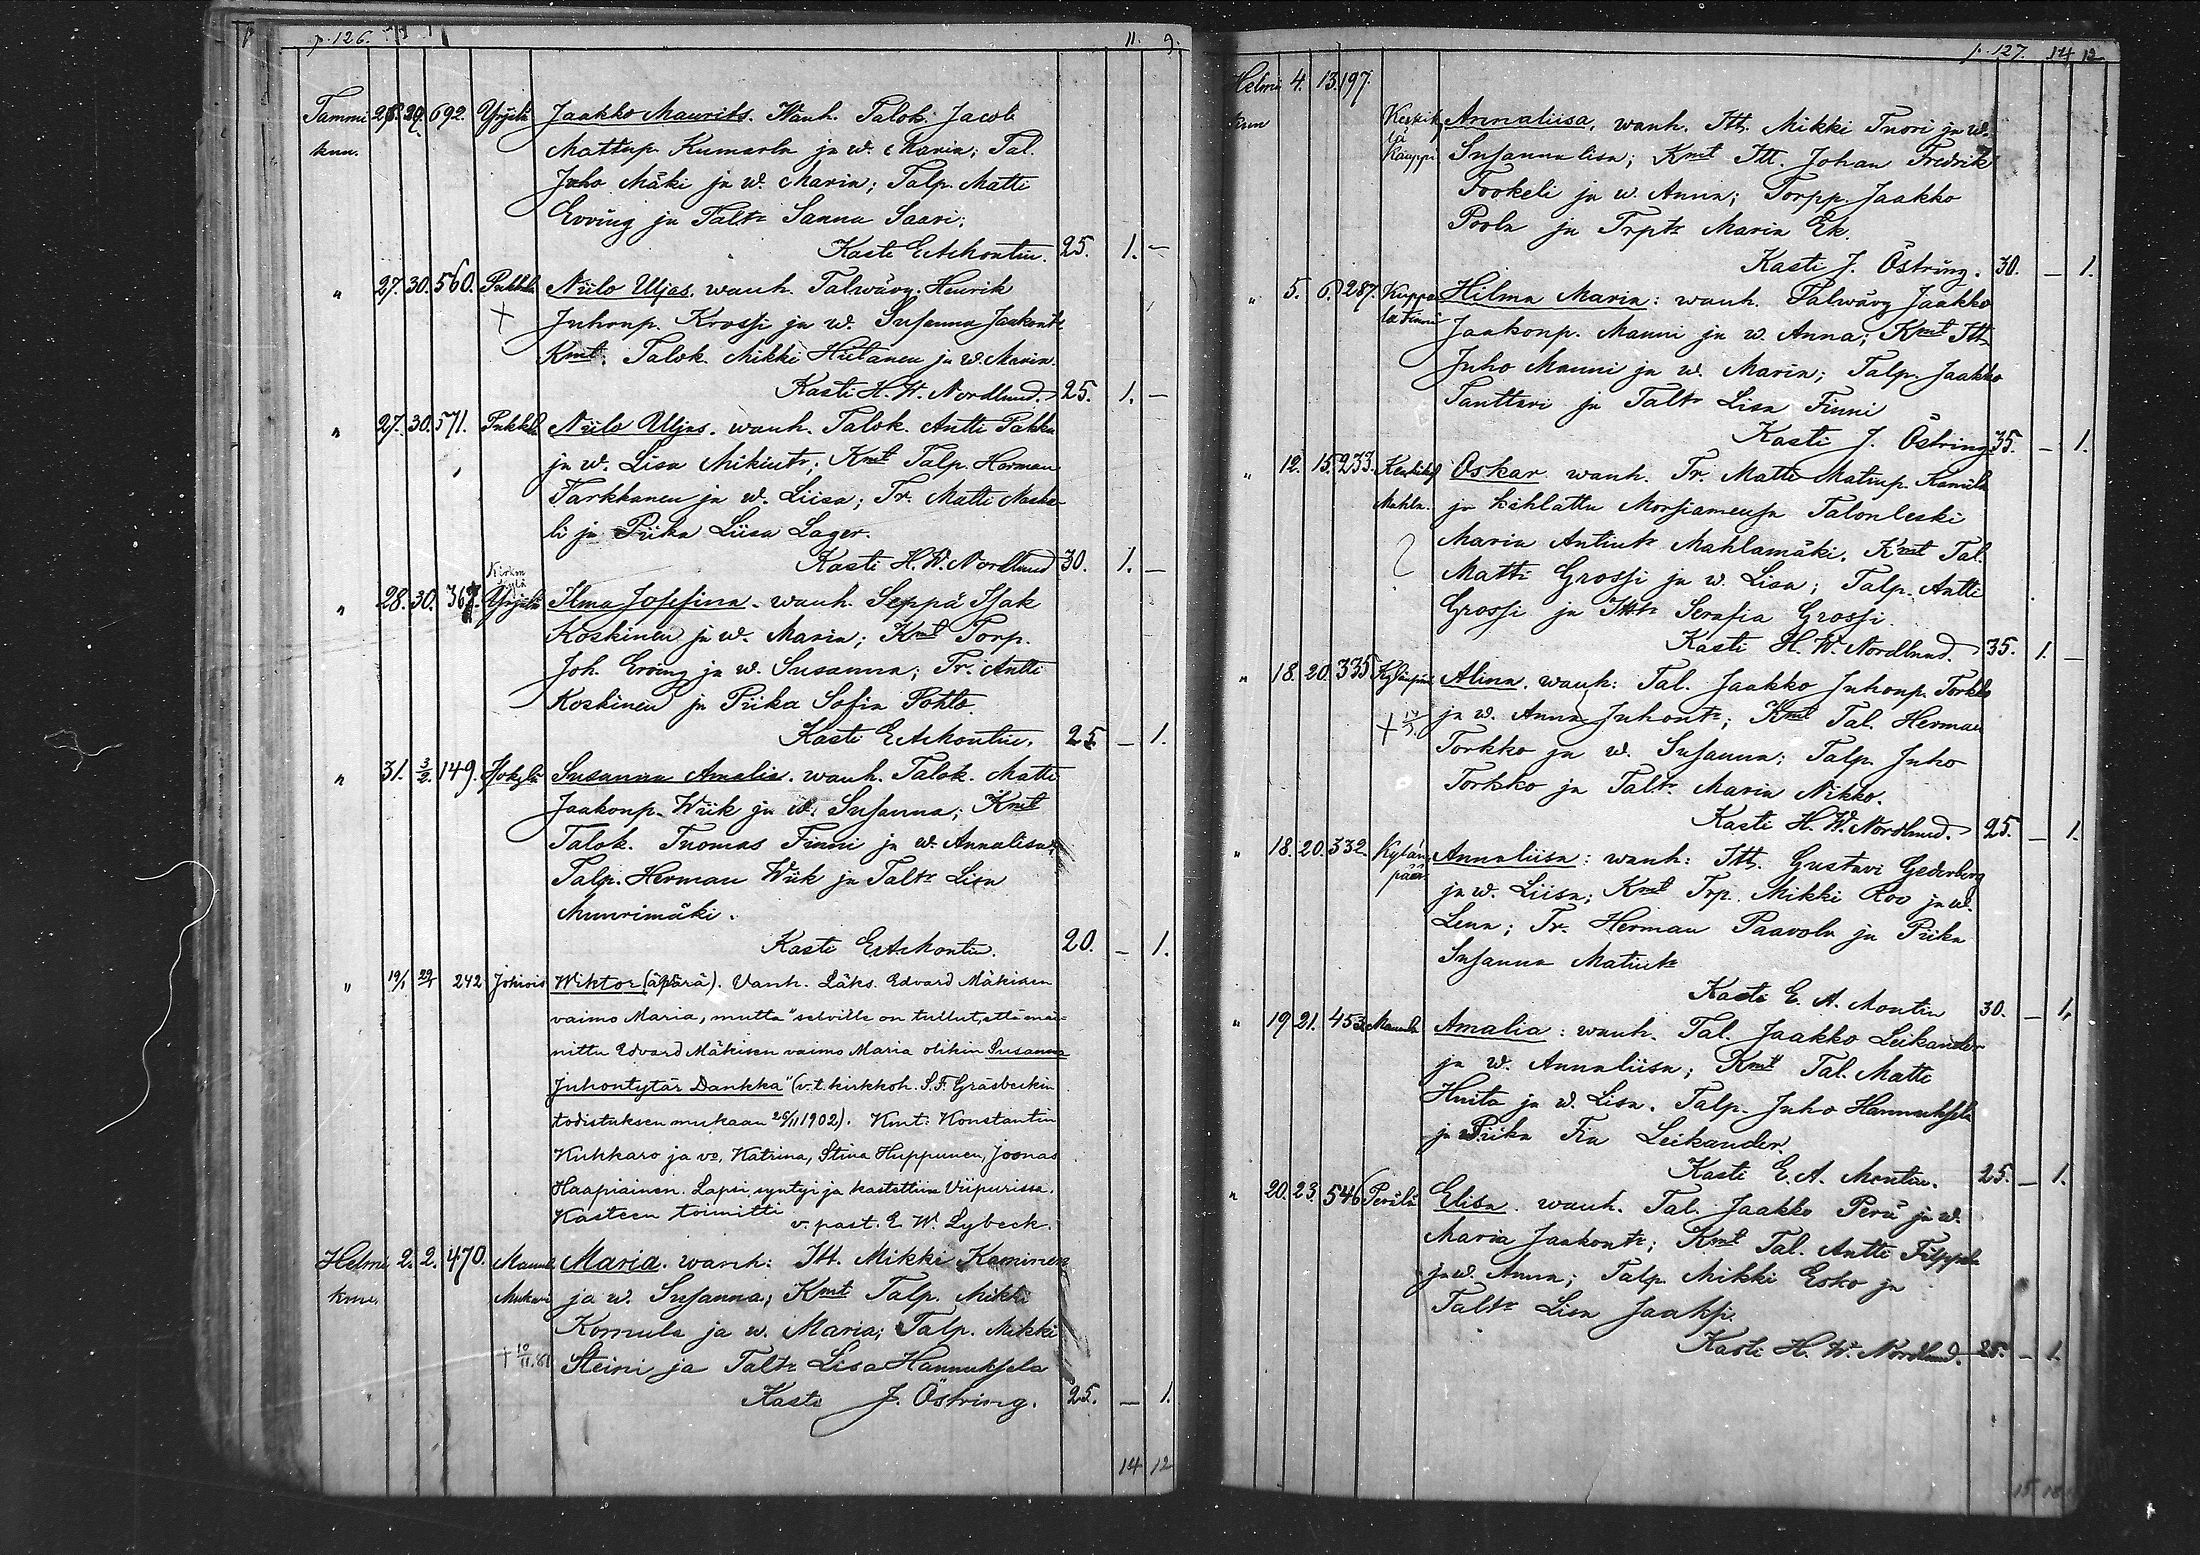 p. 126. 11. 9.
Tammi 28. 29. 692. Yrjälä Jaakko Maurits. Wanh. Talok. Jacob
kuu. Mattsp. Kumarla ja w. Maria; Tal.
Juho Mäki ja w. Maria; Talp. Matti
Erving ja Taltr Sanna Saari;
Kasti E A Montin. 25. 1. —
" 27. 30. 560. Niilo Uljas. wanh. Talwäwy. Henrik
+ Juhonp. Krossi ja w. Susanna Jaakontr
Kmt. Talok. Mikki Hietanen ja w. Maria.
Kasti H. W. Nordlund. 25. 1. —
" 27. 30. 571. Pukkila Niilo Uljas. wanh. Talok. Antti Pakka
ja w. Lisa Mikintr; Kmt Talp. Herman
Tarkkanen ja w. Liisa; Tr. Matti
li ja Piika Liisa Lager.
Kasti H. W. Nordlund 30. 1. —
" 28. 30. 367. Yrjälä Ilma Josefina. wanh. Seppä Isak
Koskinen ja w. Maria; Kmt Torp.
Joh. Erving ja w. Susanna; Tr. Antti
Koskinen ja Piika Sofia Pohto.
Kasti E A Montin. 25 — 1.
" 31. 3/2. 149. Susanna Amalia. wanh. Talok. Matti
Jaakonp. Wiik ja w. Susanna; Kmt
Talok. Tuomas Finni ja w. Annalisa;
Talp. Herman Wiik ja Taltr Lisa
Muurimäki.
Kasti E A Montin. 20. — 1.
" 19/1 29/1 242 Jokiois Wiktor (äpärä). Vanh. Läks. Edvard Mäkisen
vaimo Maria, mutta "selville on tullut, että mai-
nittu Edvard Mäkisen vaimo Maria olikin Susanna
Juhontytär Dankka" (v.t. kirkkoh. S. F. Gräsbeckin
todistuksen mukaan 26/11 1902). Kmt: Konstantin
Kukkaro ja vo, Katrina, Stina Huppunen, Joonas
Haapiainen. Lapsi syntyi ja kastettiin Viipurissa.
Kasteen toimitti v. past. E. W. Lybeck.
Helmi 2. 2. 470. Maria. wanh: Itt. Mikki Keminen
kuu. ja w. Susanna; Kmt Talp. Mikki
Komula ja w. Maria; Talp. Mikki
Steini ja Taltr Lisa Hannuksela
Kasti J. Östring. 25. — 1.
14 12
p. 127. 14 12
Helmi 4. 13. 197.
kuu Annaliisa. wanh. Itt. Mikki Tuori ja w.
Kauppi Susannalisa; Kmt Itt. Johan Fredrik
Tookeli ja w. Anna; Torpp. Jaakko
Poola ja Trptr Maria Ek.
Kasti J. Östring. 30. — 1.
" 5. 6. 287. Hilma Maria: wanh. Talwäwy Jaakko
Jaakonp. Manni ja w. Anna; Kmt Itt.
Juho Manni ja w. Maria; Talp. Jaakko
Santtari ja Taltr Lisa Finni
Kasti J. Östring 35. — 1.
" 12. 15. 233. Oskar. wanh. Tr. Matti Matinp. Kamila
Mahla. ja kihlattu Morsiamensa Talonleski
Maria Antintr Mahlamäki. Kmt Tal.
Matti Grossi ja w. Lisa; Talp. Antti
Grossi ja Ittr Serafia Grossi.
Kasti H. W. Nordlund. 35. 1. —
" 18. 20. 335 Alina. wanh: Tal. Jaakko Juhonp. Torkko
+ ja w. Anna Juhontr; Kmt Tal. Herman
Torkko ja w. Susanna; Talp. Juho
Torkko ja Taltr. Maria Nikko.
Kasti H. W. Nordlund. 25. — 1.
" 18. 20. 332. Kylän- Annaliisa: wanh: Itt. Gustavi Gederberg
pää ja w. Liisa; Kmt Trp. Mikki Roo ja w.
Lena; Tr. Herman Paavola ja Piika
Susanna Matintr
Kasti E. A. Montin 30. — 1.
" 19 21. 453. Mannila Amalia: wanh. Tal. Jaakko Leikander
ja w. Annaliisa; Kmt Tal. Matti
Huita ja w. Lisa. Talp. Juho Hannuksela
ja Piika Fia Leikander.
Kasti E. A. Montin. 25. — 1.
" 20. 23. 546 Perälä Elisa. wanh. Tal. Jaakko Perä ja w.
Maria Jaakontr; Kmt Tal. Antti Filppula
ja w. Anna; Talp. Mikki Esko ja
Taltr Lisa Jaakj.
Kasti H. W. Nordlund. 25. — 1.